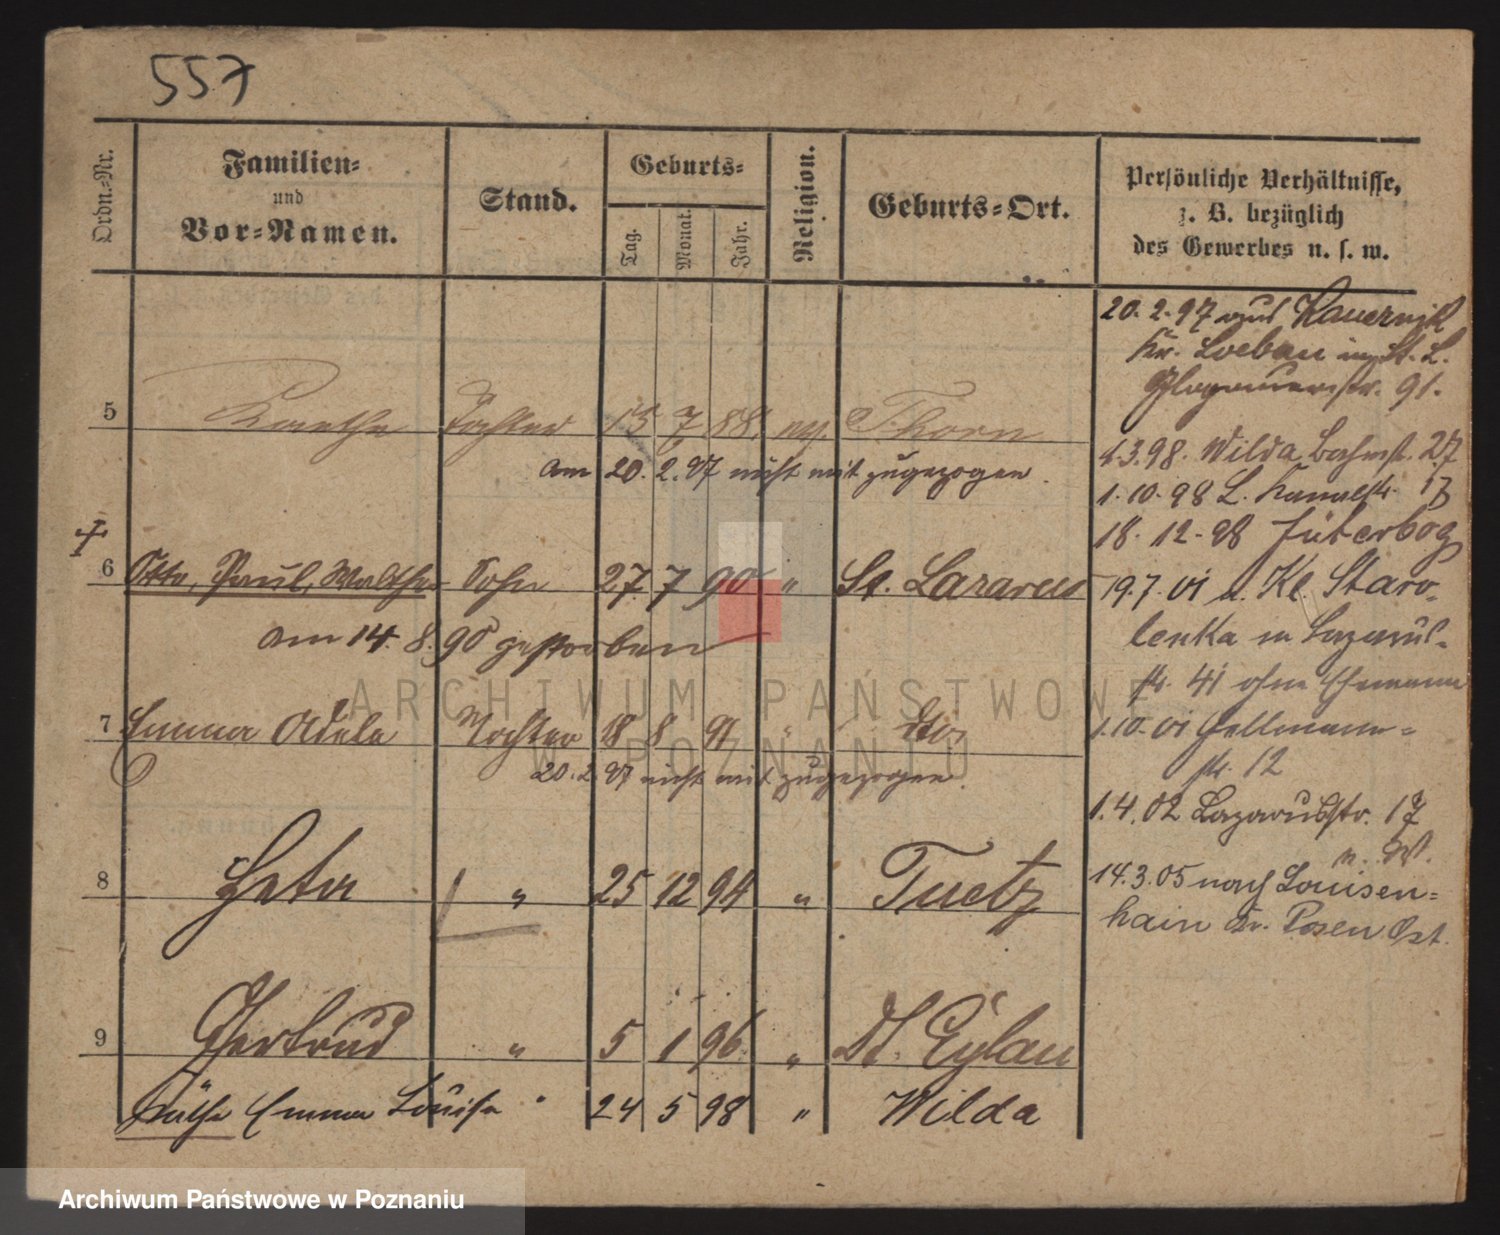 557
Ordn.-Nr.
Familien-
und
Vor-Namen.
Stand.
Geburts-
Tag.
Monat.
Jahr.
Religion.
Geburts-Ort.
Persönliche Verhältnisse,
z. B. bezüglich
des Gewerbes u. s. w.
20. 2. 97 aus Kauernik
Kr. Loebau in St. L.
Glogauerstr. 91.
5 Kaethe Tochter 15 7 88. ev. Thorn
am 20. 2. 97 nicht mit zugezogen.
1.3.98. Wilda Bahnst. 27
1. 10. 98 L. Kanalstr. 17
18. 12. 98 Jüterbog
6 Otto, Paul, Walther Sohn 27. 7 90 " St. Lazarus
am 14. 8. 90 gestorben
19.7. 01 u. Kl. Staro-
lenka in Lazarus-
str. 41 ohne Ehemann
7 Emma Adele Tochter 18 8 91 " dto.
20. 2. 97 nicht mit zugezogen.
1.10. 01 Hellmann-
str. 12
1. 4. 02 Lazarusstr. 17
n. W.
8 Heta " 25 12 94 " Tuetz
14. 3. 05 nach Louisen-
hain Kr. Posen Ost.
9 Gertrud " 5 1 96. " Dt. Eylau
Käthe Emma Louise " 24 5 98 " Wilda
ARCHIWUM PAŃSTWOWE
W POZNANIU
Archiwum Państwowe w Poznaniu